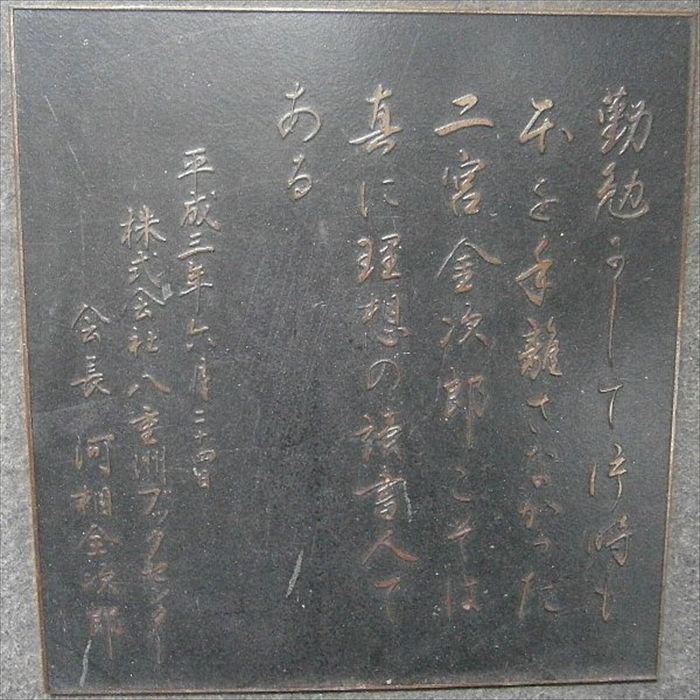 勤勉にして片時も
本を手離さなかった
二宮金次郎こそは
真に理想の読書人で
ある
平成三年六月二十四日
株式会社八重洲ブックセンター
会長 河相全次郎